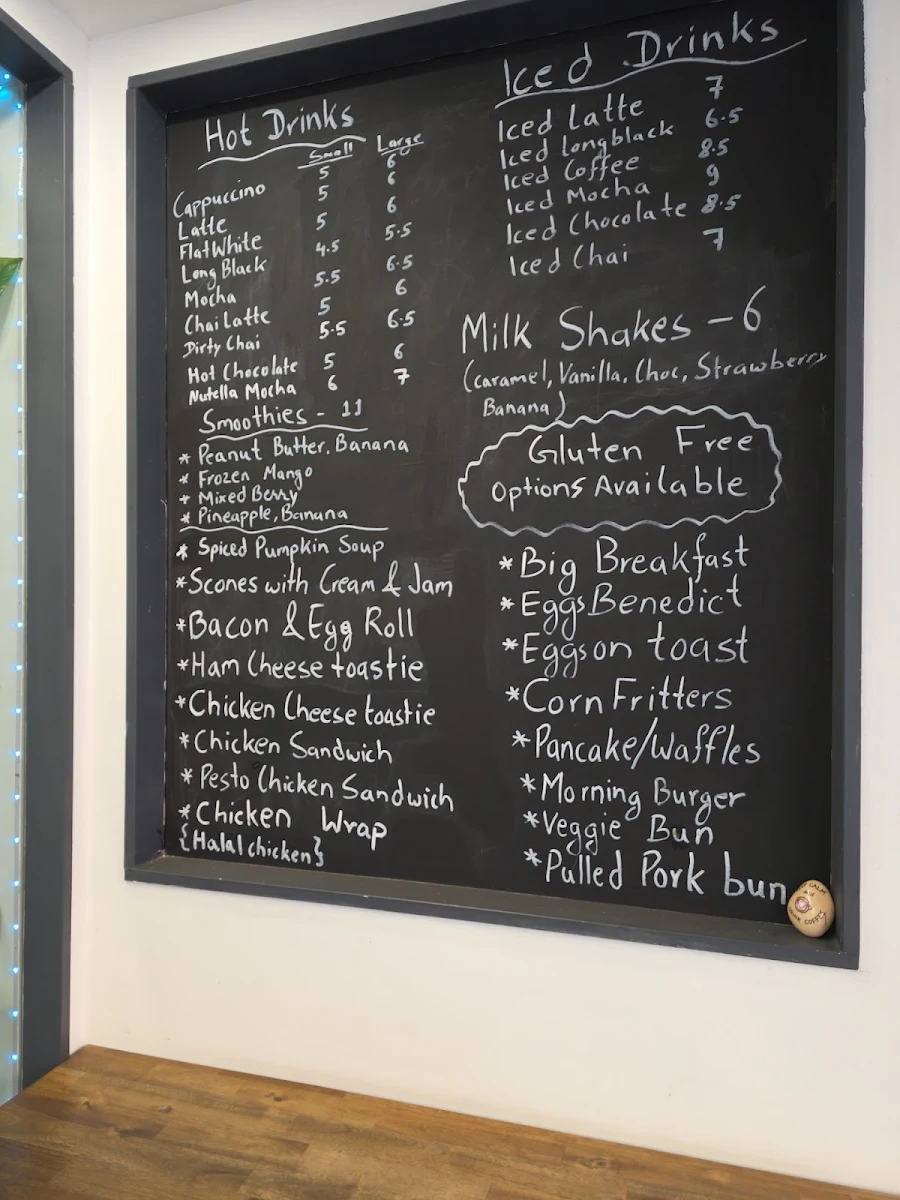 Hot Drinks
Small Large
Cappuccino 5 6
Latte 5 6
Flat White 5 6
Long Black 4.5 5.5
Mocha 5.5 6.5
Chai Latte 5 6
Dirty Chai 5.5 6.5
Hot Chocolate 5 6
Nutella Mocha 6 7
Smoothies - 11
* Peanut Butter, Banana
* Frozen Mango
* Mixed Berry
* Pineapple, Banana
* Spiced Pumpkin Soup
* Scones with Cream & Jam
* Bacon & Egg Roll
* Ham Cheese toastie
* Chicken Cheese toastie
* Chicken Sandwich
* Pesto Chicken Sandwich
* Chicken Wrap
{Halal chicken}
Iced Drinks
Iced Latte 7
Iced longblack 6.5
Iced Coffee 8.5
Iced Mocha 9
Iced Chocolate 8.5
Iced Chai 7
Milk Shakes - 6
(caramel, Vanilla, Choc, Strawberry
Banana)
Gluten Free
Options Available
* Big Breakfast
* Eggs Benedict
* Eggs on toast
* Corn Fritters
* Pancake/Waffles
* Morning Burger
* Veggie Bun
* Pulled Pork bun